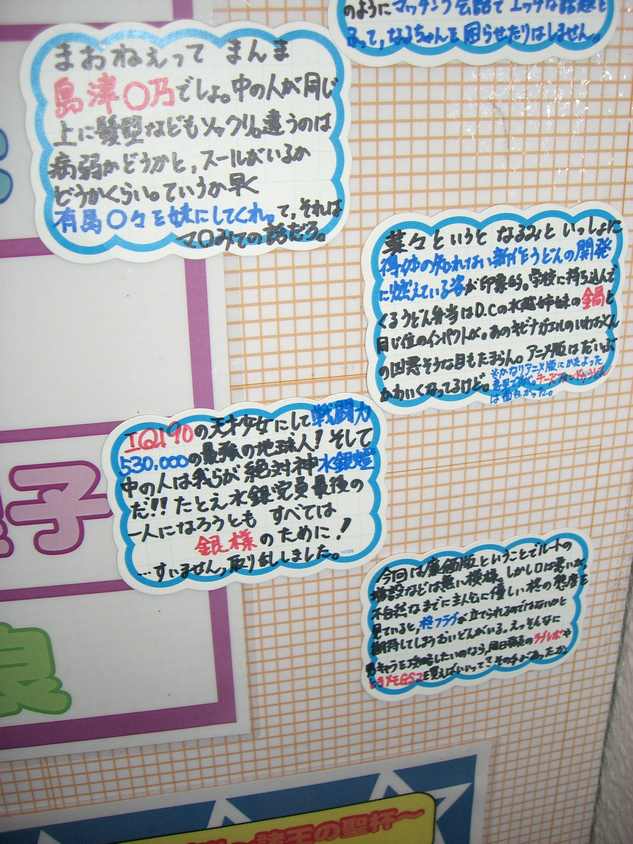 のようにマッチョな会話でエッチな話題を
ふって、なるちゃんを困らせたりはしません。
まおねぇって まんま
島津〇乃でしょ。中の人が同じ
上に髪型などもソックリ。違うのは
病弱かどうかと、スールがいるか
どうかくらい。ていうか早く
有馬〇々を妹にしてくれって、それは
マ〇みての話だろ。
菜々というと なるみといっしょに
得体の知れない新作うどんの開発
に燃えている姿が印象的。学校に持ち込んで
くるうどん弁当はD.Cの水越姉妹の鍋と
同じ位のインパクトが。あのキビナガエルのいわおくん
の凶悪そうな目もたまらん。アニメ版はだいぶ
かわいくなってるけど。
IQ190の天才少女にして戦闘力
530,000の最強の地球人！そして
中の人は我らが絶対神水銀燈
だ!!たとえ水銀党員最後の
一人になろうとも すべては
銀様のために！
…すいません、取り乱しました。
今回は廉価版ということでルートの
増設などは無い模様。しかし口は悪いが
不自然なまでに主人公に優しい柊の態度を
見ていると、柊フラグが立てられるのではないかと
期待してしまうおいどんがいる。えっそんなに
男キャラを攻略したいのなら、同日発売のラブレボや
ときメモGS2を買えばいいって？その手があったか。
子
良
〜諸王の聖杯〜